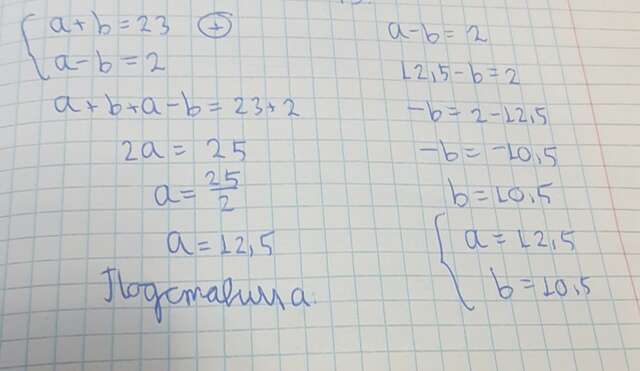 { a + b = 23 ⊕
a - b = 2
a + b + a - b = 23 + 2
2a = 25
a = 25/2
a = 12,5
Подставим a.
a - b = 2
12,5 - b = 2
-b = 2 - 12,5
-b = -10,5
b = 10,5
{ a = 12,5
b = 10,5